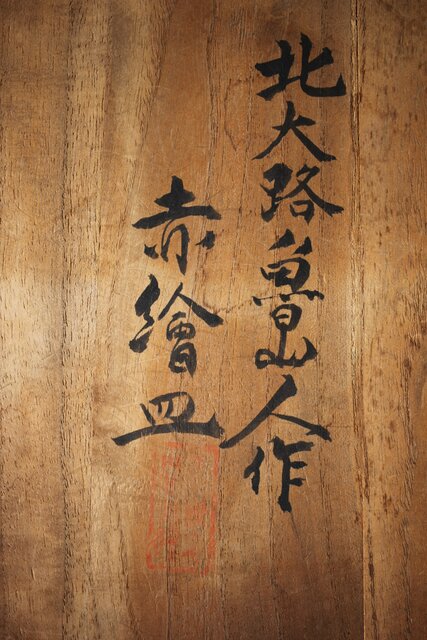 北大路魯山人作
赤繪皿